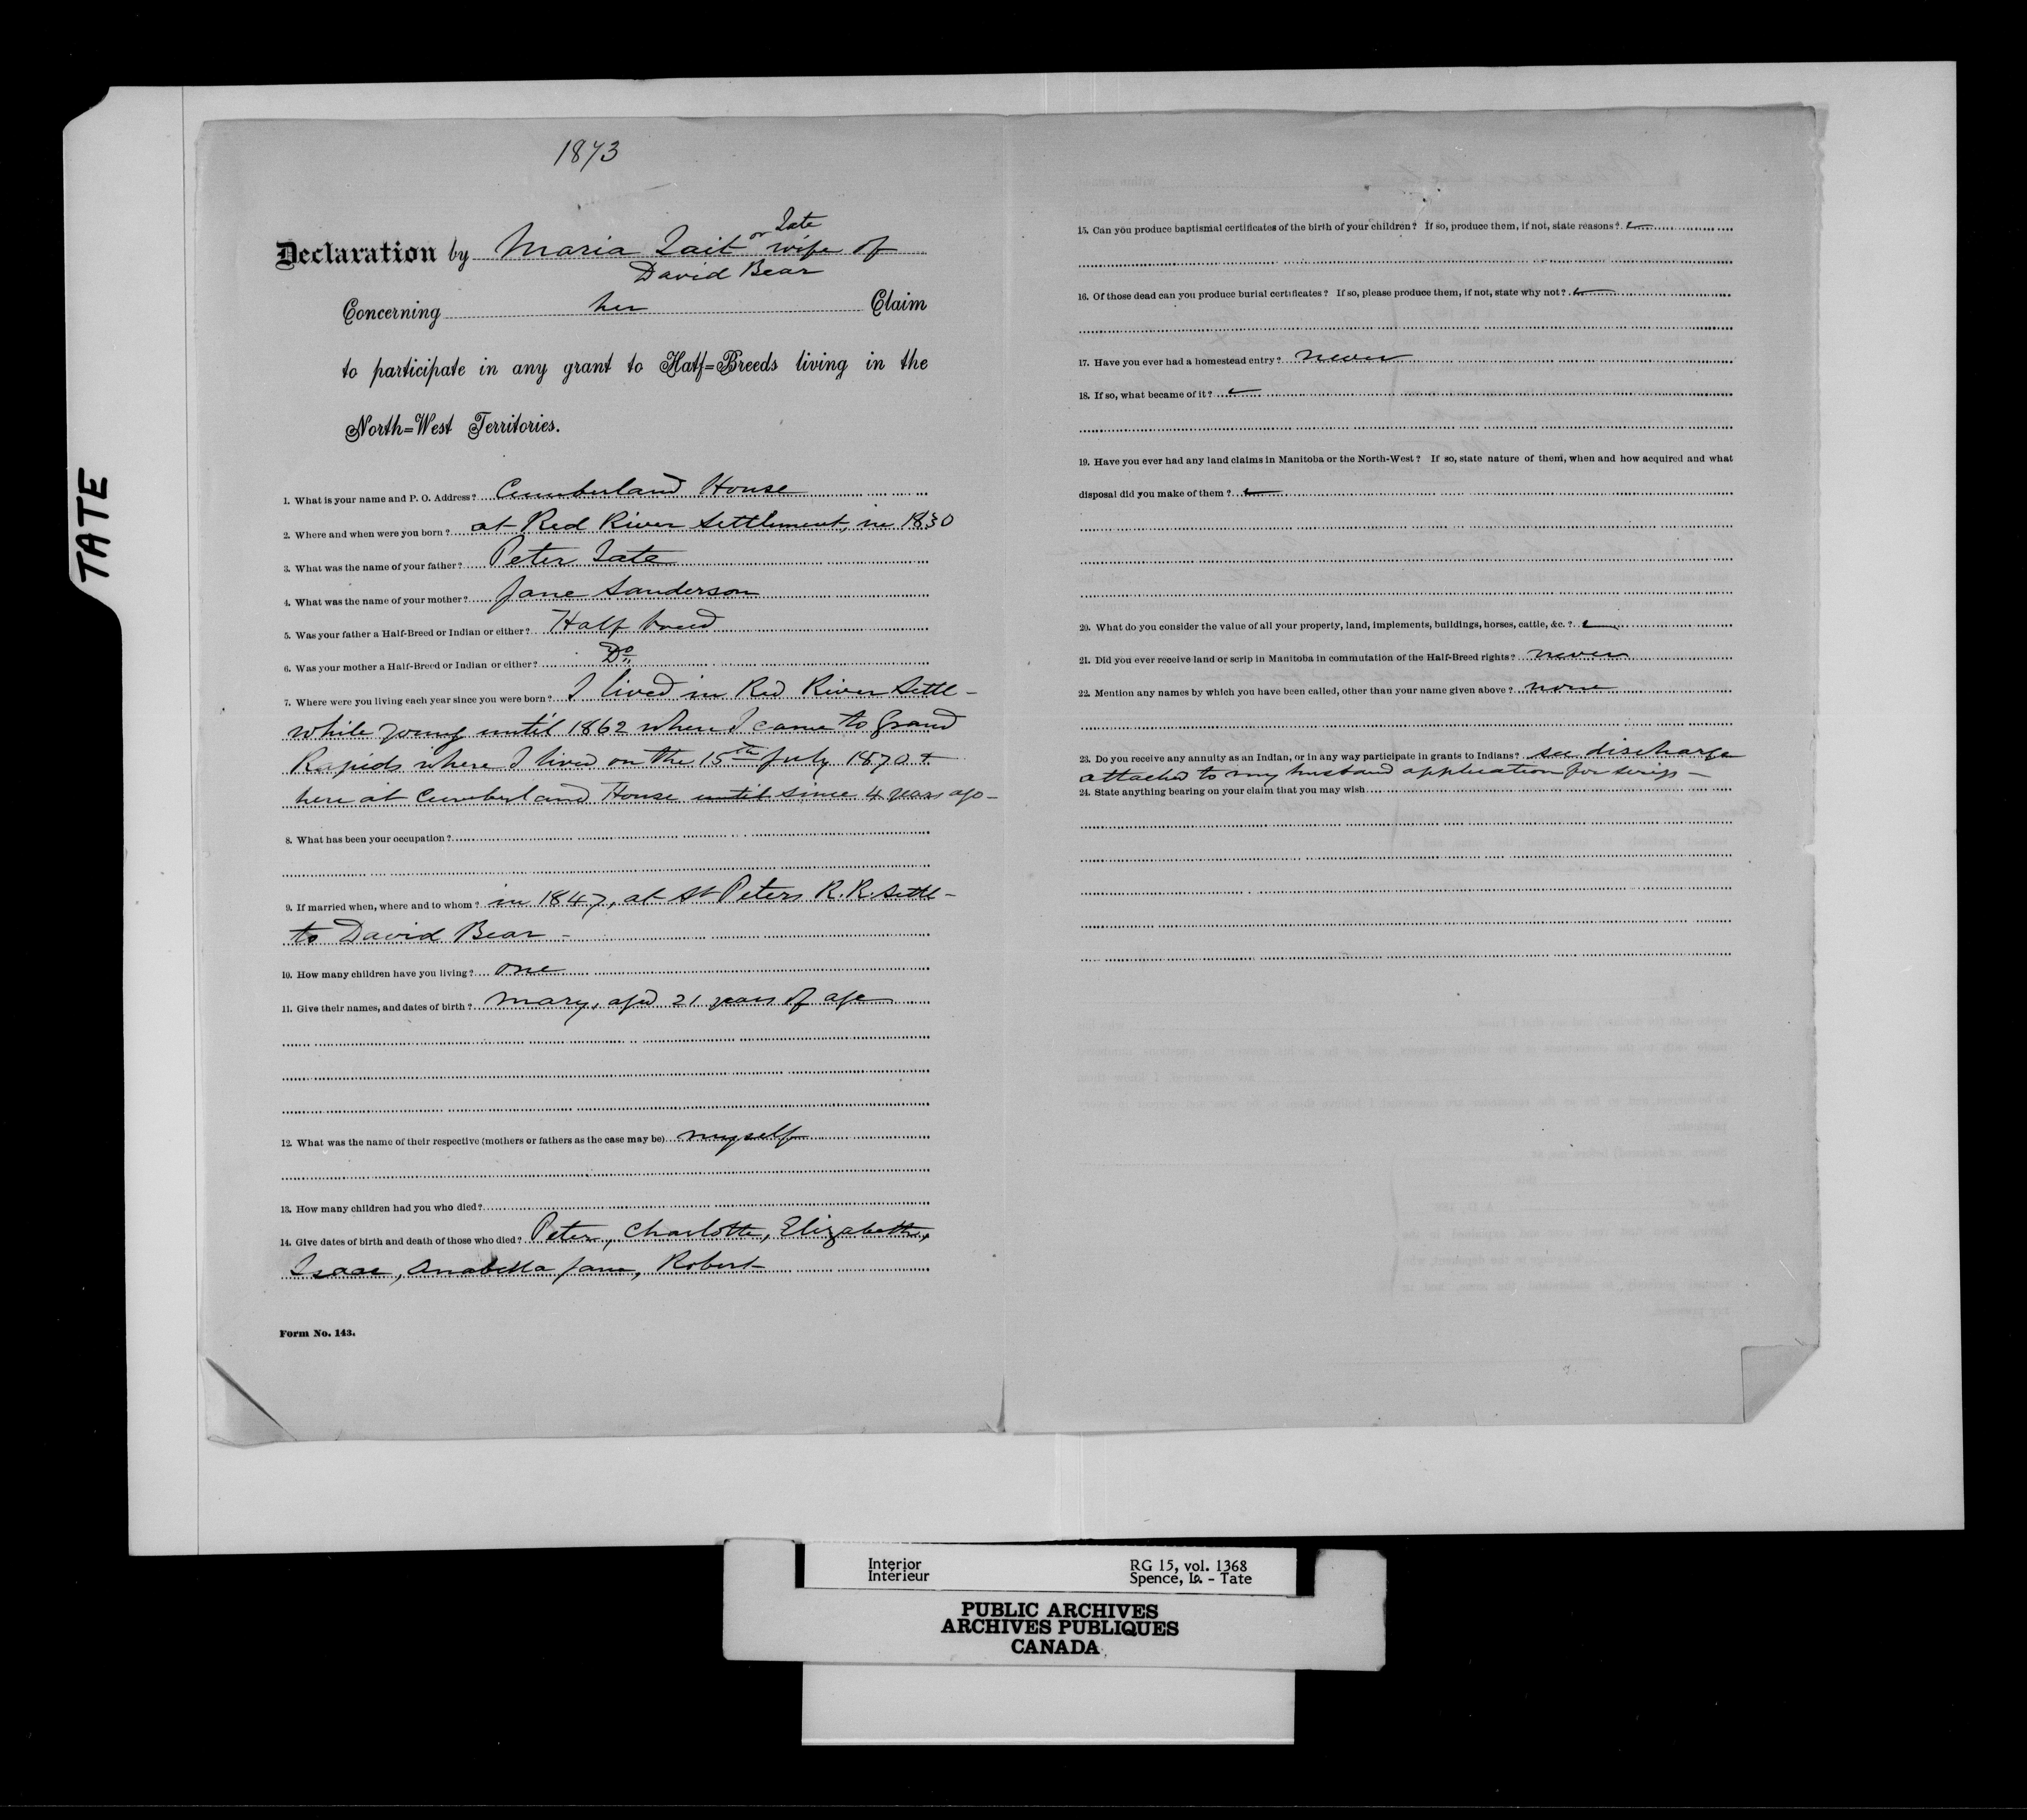 TATE
1873
Declaration by Maria Tait or Tate wife of
David Bear
Concerning her Claim
to participate in any grant to Half=Breeds living in the
North=West Territories.
1. What is your name and P. O. Address? Cumberland House
2. Where and when were you born? at Red River Settlement, in 1830
3. What was the name of your father? Peter Tate
4. What was the name of your mother? Jane Sanderson
5. Was your father a Half-Breed or Indian or either? Half breed
6. Was your mother a Half-Breed or Indian or either? Do
7. Where were you living each year since you were born? I lived in Red River Settl-
while young until 1862 when I came to Grand
Rapids where I lived on the 15th July 1870 +
here at Cumberland House until since 4 years ago -
8. What has been your occupation?
9. If married when, where and to whom? in 1847, at St Peters R. R. Settl-
to David Bear -
10. How many children have you living? one
11. Give their names, and dates of birth? Mary, aged 21 years of age
12. What was the name of their respective (mothers or fathers as the case may be) myself
13. How many children had you who died?
14. Give dates of birth and death of those who died? Peter, Charlotte, Elizabeth,
Isaac, Anabella Jane, Robert
Form No. 143.
15. Can you produce baptismal certificates of the birth of your children? If so, produce them, if not, state reasons?
16. Of those dead can you produce burial certificates? If so, please produce them, if not, state why not?
17. Have you ever had a homestead entry? never
18. If so, what became of it?
19. Have you ever had any land claims in Manitoba or the North-West? If so, state nature of them, when and how acquired and what
disposal did you make of them?
20. What do you consider the value of all your property, land, implements, buildings, horses, cattle, &c.?
21. Did you ever receive land or scrip in Manitoba in commutation of the Half-Breed rights? never
22. Mention any names by which you have been called, other than your name given above? none
23. Do you receive any annuity as an Indian, or in any way participate in grants to Indians? see discharge
attached to my husband application for scrip -
24. State anything bearing on your claim that you may wish
Interior
Intérieur
RG 15, vol. 1368
Spence, Is. - Tate
PUBLIC ARCHIVES
ARCHIVES PUBLIQUES
CANADA